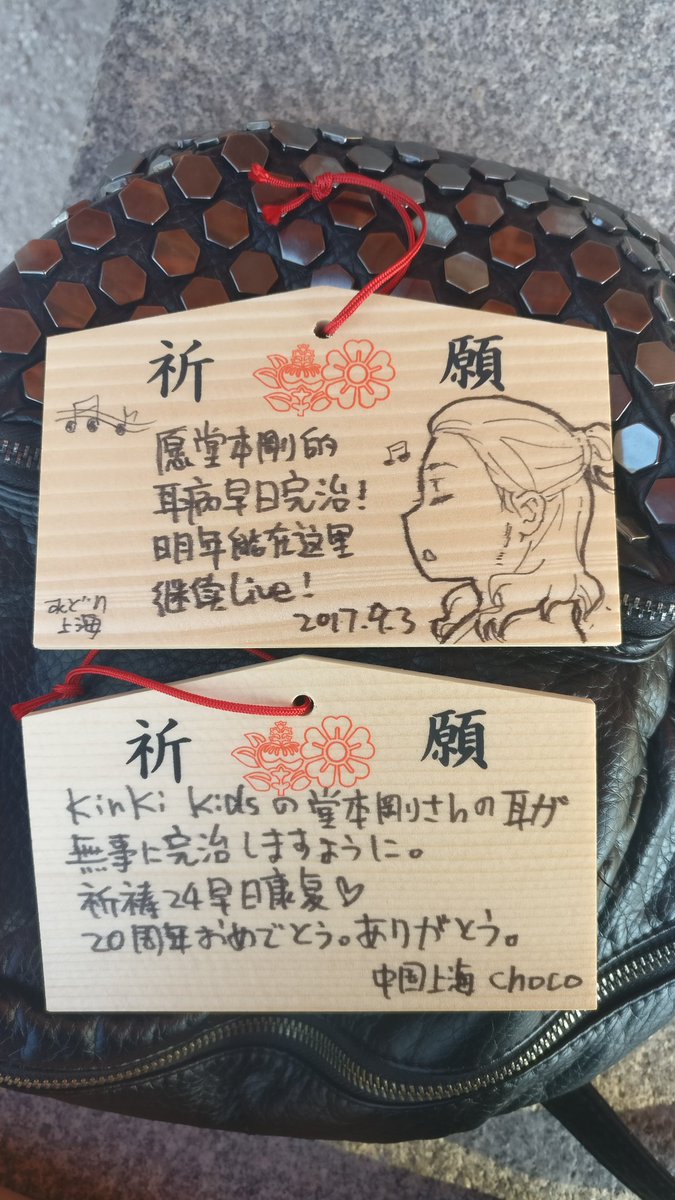 祈願
愿堂本剛的
耳病早日完治！
明年能在这里
继续Live！
2017.9.3
みどり
上海
祈願
Kinki Kidsの堂本剛さんの耳が
無事に完治しますように。
祈祷24早日康复♡
20周年おめでとう。ありがとう。
中国上海 Choco